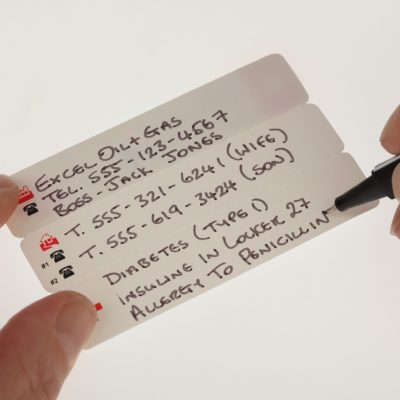 EXCEL OIL + GAS
TEL. 555-123-4567
BOSS - JACK JONES
T. 555-321-6241 (WIFE)
#1
T. 555-619-3424 (SON)
#2
DIABETES (TYPE 1)
INSULINE IN LOCKER 27
ALLERGY TO PENICILLIN